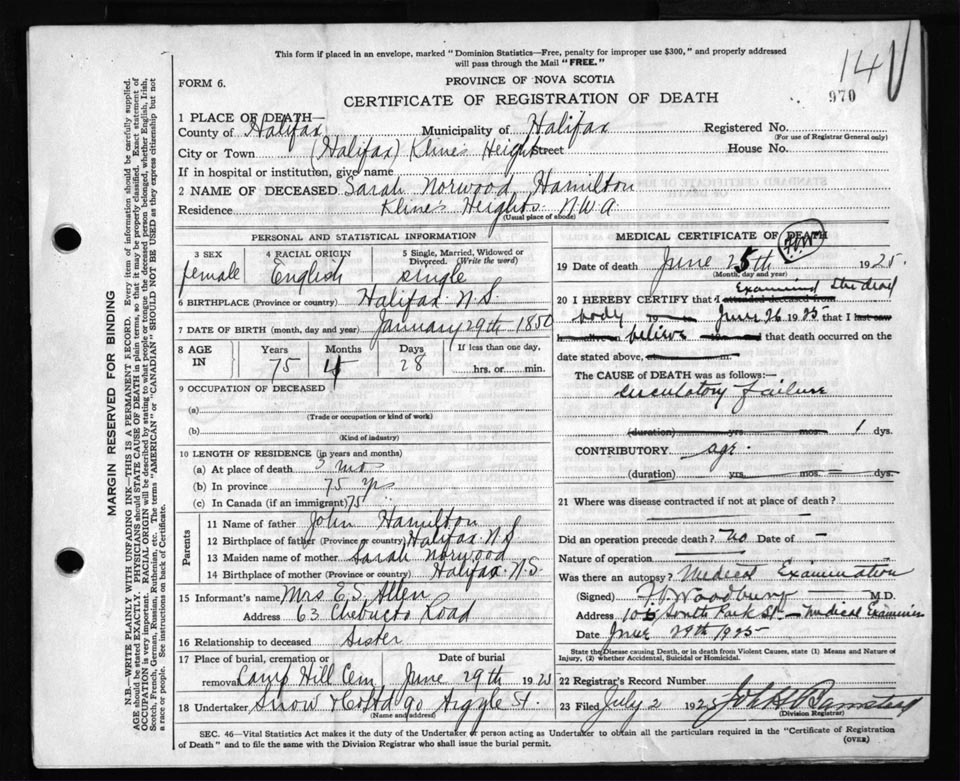 This form if placed in an envelope, marked "Dominion Statistics—Free, penalty for improper use $300," and properly addressed
will pass through the Mail "FREE."
14
970
FORM 6.
PROVINCE OF NOVA SCOTIA
CERTIFICATE OF REGISTRATION OF DEATH
1 PLACE OF DEATH—
County of Halifax Municipality of Halifax Registered No.
(For use of Registrar General only)
City or Town (Halifax) Kline's Heights Street House No.
If in hospital or institution, give name
2 NAME OF DECEASED Sarah Norwood Hamilton
Residence Kline's Heights. N.W.A.
(Usual place of abode)
PERSONAL AND STATISTICAL INFORMATION
3 SEX 4 RACIAL ORIGIN 5 Single, Married, Widowed or
Divorced. (Write the word)
female English single
6 BIRTHPLACE (Province or country) Halifax N.S.
7 DATE OF BIRTH (month, day and year) January 29th 1850
8 AGE IN Years Months Days If less than one day,
75 4 28 hrs. or min.
9 OCCUPATION OF DECEASED
(a)
(Trade or occupation or kind of work)
(b)
(Kind of industry)
10 LENGTH OF RESIDENCE (in years and months)
(a) At place of death 3 mos
(b) In province 75 yrs
(c) In Canada (if an immigrant) 75
Parents
11 Name of father John Hamilton
12 Birthplace of father (Province or country) Halifax N.S
13 Maiden name of mother Sarah Norwood
14 Birthplace of mother (Province or country) Halifax N.S.
15 Informant's name Mrs E.S. Allen
Address 63 Chebucto Road
16 Relationship to deceased Sister
17 Place of burial, cremation or Date of burial
removal Camp Hill Cem June 29th 1925
18 Undertaker Snow & Co Ltd 90 Argyle St.
(Name and address)
MEDICAL CERTIFICATE OF DEATH
19 Date of death June 25th 1925.
(Month, day and year)
Examined Study
20 I HEREBY CERTIFY that I attended deceased from
body 19 June 26 1925 that I last saw
believe that death occurred on the
date stated above, at m.
The CAUSE of DEATH was as follows:—
circulatory failure
(duration) yrs. mos. 1 dys.
CONTRIBUTORY age.
(duration) yrs. mos. dys.
21 Where was disease contracted if not at place of death?
Did an operation precede death? no Date of —
Nature of operation
Was there an autopsy? Medical Examination
(Signed) Woodbury M.D.
Address 105 South Park St — Medical Examiner
Date June 29th 1925
State the Disease causing Death, or in death from Violent Causes, state (1) Means and Nature of
Injury, (2) whether Accidental, Suicidal or Homicidal.
22 Registrar's Record Number
23 Filed July 2 1925
(Division Registrar)
SEC. 46—Vital Statistics Act makes it the duty of the Undertaker or person acting as Undertaker to obtain all the particulars required in the "Certificate of Registration
of Death" and to file the same with the Division Registrar who shall issue the burial permit.
(OVER)
MARGIN RESERVED FOR BINDING
N.B.—WRITE PLAINLY WITH UNFADING INK—THIS IS A PERMANENT RECORD. Every item of information should be carefully supplied.
AGE should be stated EXACTLY. PHYSICIANS should STATE CAUSE OF DEATH in plain terms, so that it may be properly classified. Exact statement of
OCCUPATION is very important. RACIAL ORIGIN will be described by stating to what people or tongue the deceased person belonged, whether English, Irish,
Scotch, French, German, Russian, Ruthenian, etc. The terms "AMERICAN" or "CANADIAN" SHOULD NOT BE USED as they express citizenship but not
a race or people. See instructions on back of Certificate.